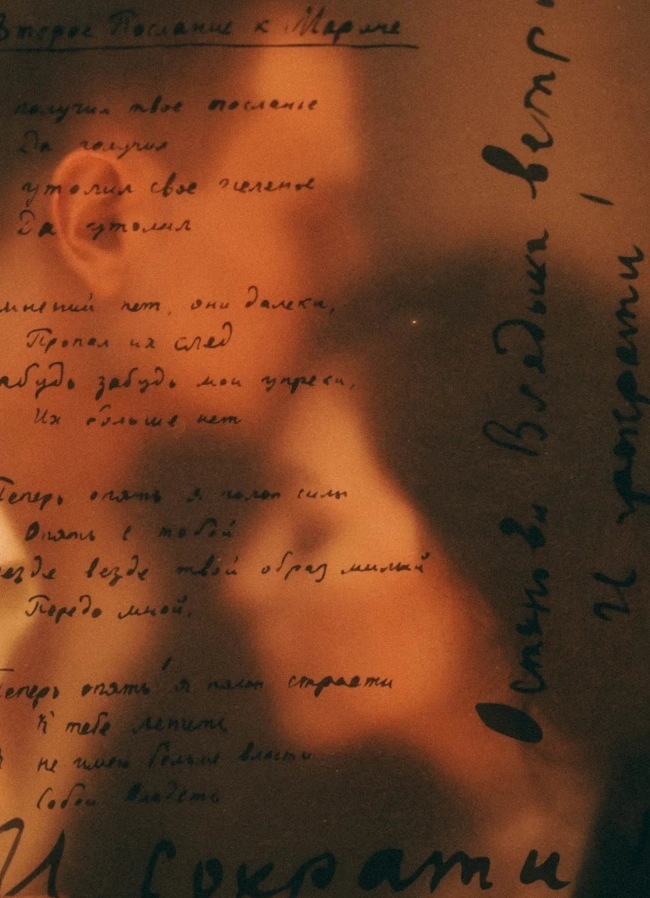 Второе Послание к Марине
получил твое посланье
Да получил
утолил свое
Да утолил
мнений нет, они далеки,
Пропал их след
забудь забудь мои упреки,
Их больше нет
Теперь опять я полон силы
Опять с тобой
везде везде твой образ милый
Передо мной.
Теперь опять я полон страсти
К тебе лететь
не имею больше власти
Собой владеть
И сократи
Останови Владыка ветр
И украти